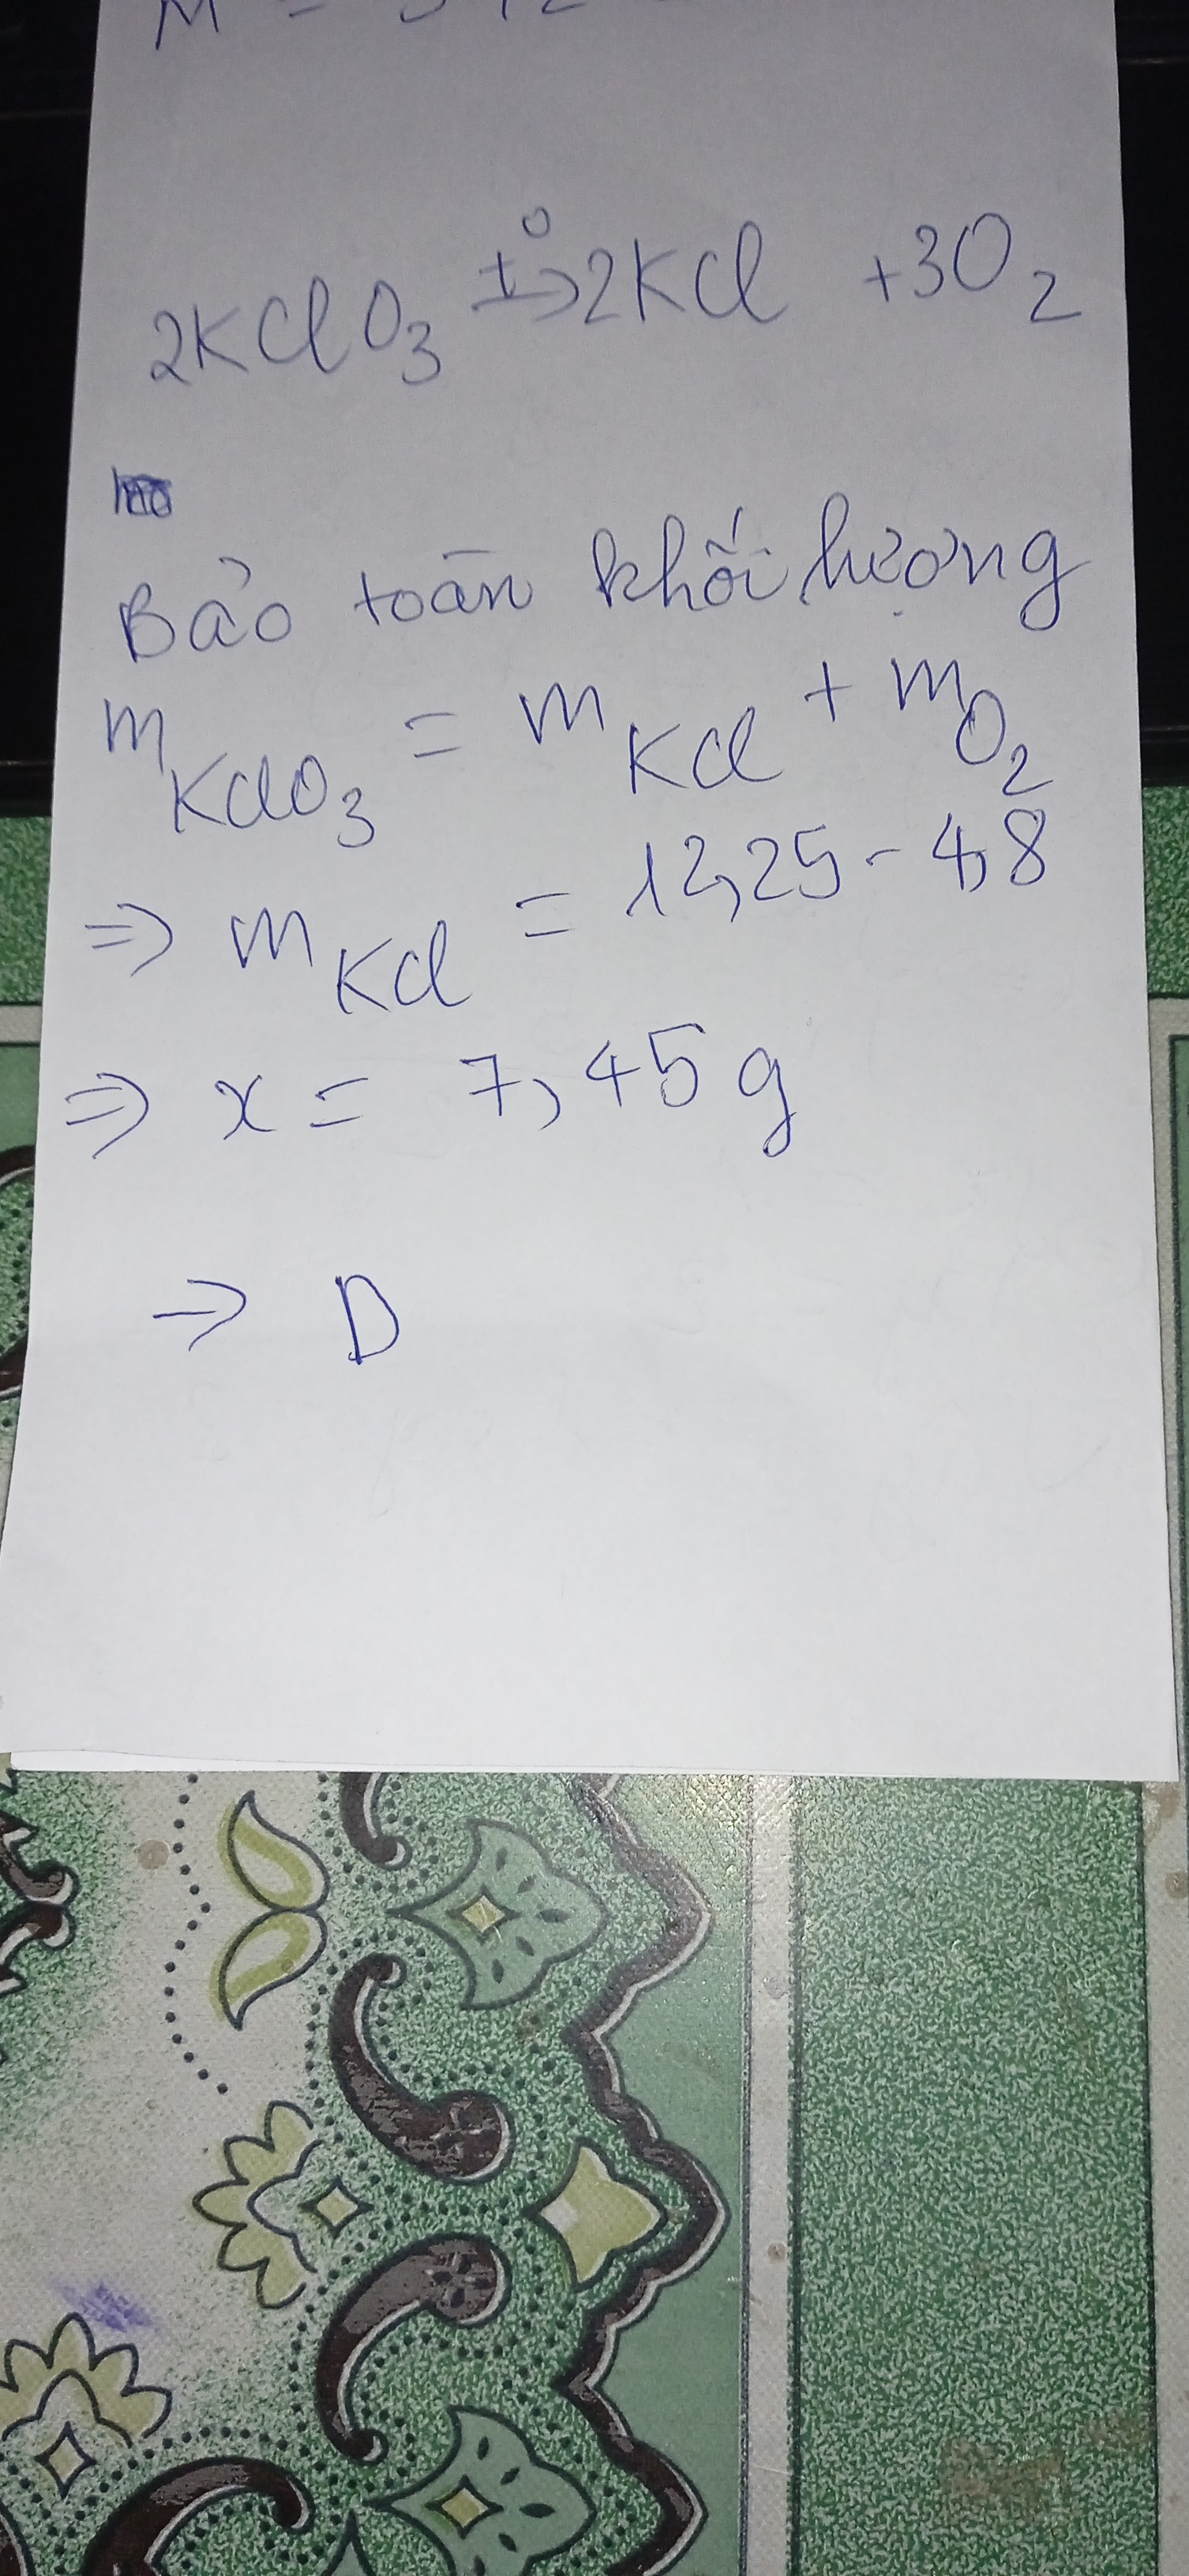 2KClO₃ t⁰→ 2KCl + 3O₂
Bảo toàn khối lượng
m KClO₃ = m KCl + m O₂
=> m KCl = 12,25 - 4,8
=> x = 7,45 g
→ D